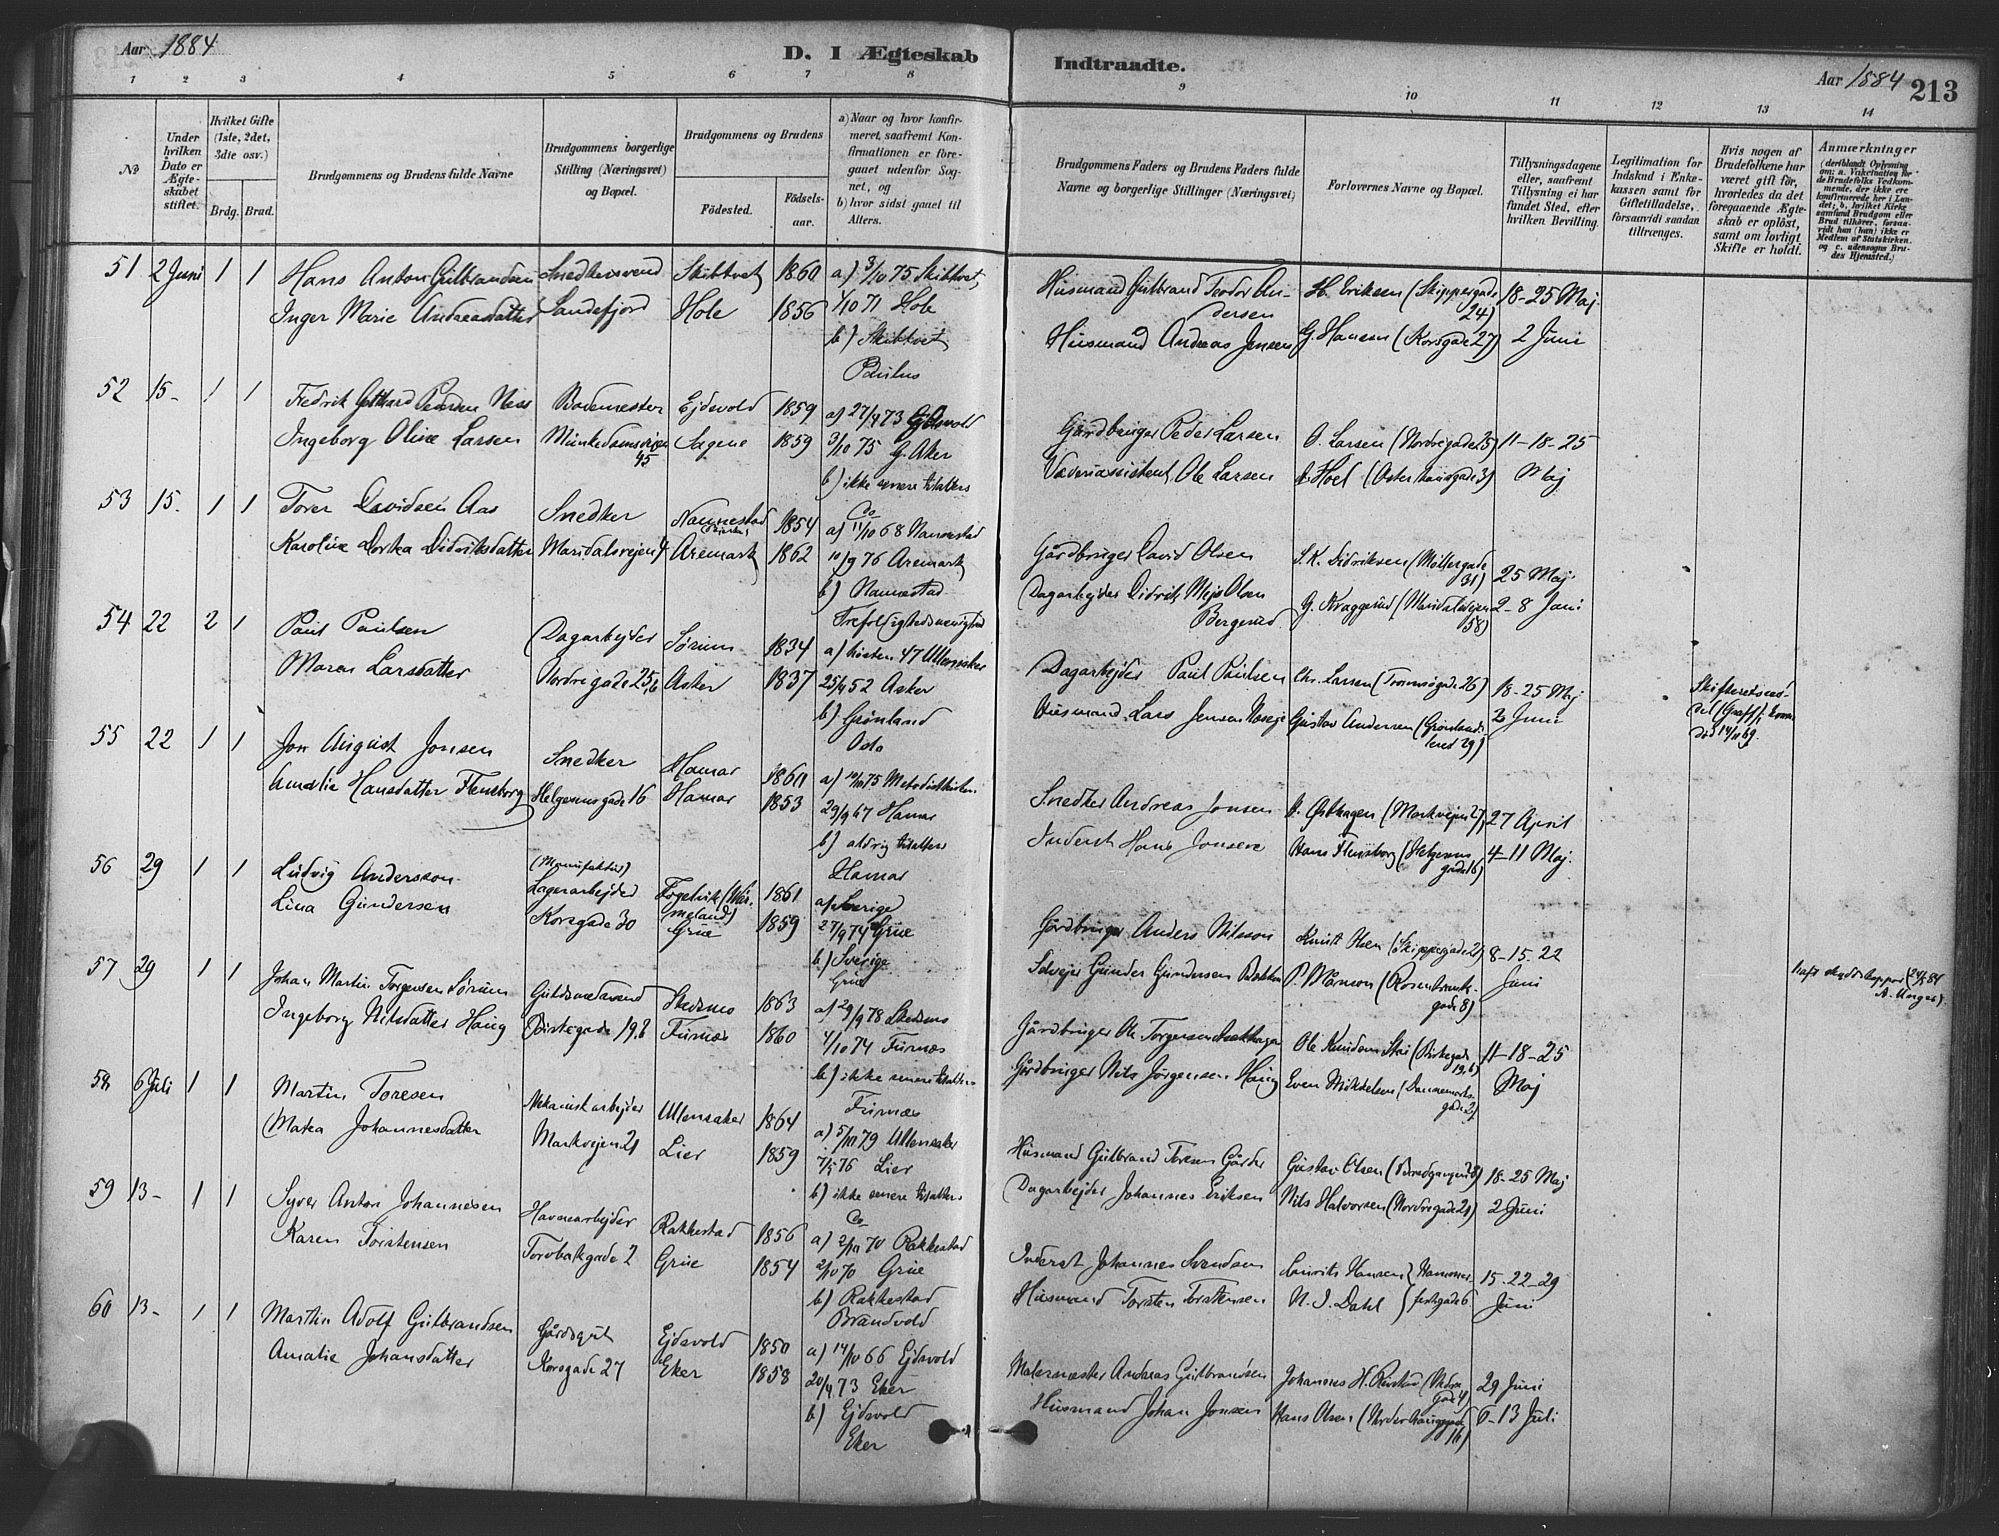 Aar 1884
D. I Ægteskab Indtraadte.
Aar 1884 213
1 2 3 4 5 6 7 8 9 10 11 12 13 14
No
Under hvilken Dato er Ægteskabet stiftet.
Hvilket Gifte (1ste, 2det, 3die osv.)
Brdg. Brud.
Brudgommens og Brudens fulde Navne
Brudgommens borgerlige Stilling (Næringsvei) og Bopæl.
Brudgommens og Brudens
Fødested. Fødselsaar.
a) Naar og hvor konfirmeret, saafremt Konfirmationen er foregaaet udenfor Sognet, og
b) hvor sidst gaaet til Alters.
Brudgommens Faders og Brudens Faders fulde Navne og borgerlige Stillinger (Næringsvei)
Forlovernes Navne og Bopæl.
Tillysningsdagene eller, saafremt Tillysning ei har fundet Sted, efter hvilken Bevilling.
Legitimation for Indskud i Enkekassen samt for Giftetilladelse, forsaavidt saadan tiltrænges.
Hvis nogen af Brudefolkene har været gift før, hvorledes da det foregaaende Ægteskab er opløst, samt om lovligt Skifte er holdt.
Anmærkninger
51 2 Juni 1 1 Hans Anton Gulbrandsen Snedkersvend Skibtvet 1860 a) 3/10 75 Skibtvet,
Inger Marie Andreasdatter Sandefjord Hole 1856 1/10 71 Hole
b) Skibtvet
Paulus
Husmand Gulbrand Teodor Andersen H. Eriksen (Skippergade 24) 18-25 Maj
Husmand Andreas Jensen G. Hansen (Korsgade 27) 2 Juni
52 15- 1 1 Fredrik Gotthard Pedersen Næss Bademester Ejdsvold 1859 a) 27/4 73 Ejdsvold
Ingeborg Oline Larsen Munkedamsvejen 45 Sagene 1859 3/10 75 G. Aker
b) ikke senere tilalters
Co
Gårdbruger Peder Larsen O. Larsen (Nordregade 25) 11-18-25
Væveriassistent Ole Larsen A Hoel (Osterhausgade 3) Maj
53 15. 1 1 Torer Davidsen Aas Snedker Nannestad 1854 a) 11/10 68 Nannestad
Karoline Dortea Didriksdatter Maridalsvejen 4 Aremark 1862 10/9 76 Aremark
b) Nannestad
Trefoldighedsmenighed
Gårdbruger David Olsen S. K. Didriksen (Møllergade 31) 25 Maj
Dagarbejder Didrik Mejs Olsen Bergerud G. Kraggerud (Maridalsvejen 58) 2-8 Juni
54 22 2 1 Paul Paulsen Dagarbejder Sørum 1834 a) høsten 47 Ullensaker
Maren Larsdatter Nordregade 25, b Asker 1837 25/4 52 Asker
b) Grønland
Oslo
Dagarbejder Paul Paulsen Chr. Larsen (Tromsøgade 26) 18-25 Maj
Husmand Lars Jensen Gustav Andersen (Grønlandsleret 29) 2 Juni
55 22 1 1 Jon August Jonsen Snedker Hamar 1860 a) 10/10 75 Metodistkirken
Amalie Hansdatter Flensborg Helgesensgade 16 Hamar 1853 29/9 67 Hamar
b) aldrig tilalters
Hamar
Snedker Andreas Jonsen A. Østhagen (Markvejen 27) 27 April
Inderst Hans Jonsen Hans Flensborg (Helgesensgade 16) 4-11 Maj.
56 29 1 1 Ludvig Andersson (Manufaktur) Lagerarbejder Fogelvik (Wärmeland) 1861 a) Sverige
Lina Gundersen Korsgade 30 Grue 1859 27/9 74 Grue
b) Sverige
Grue
Gårdbruger Anders Nilsson Knut Olsen (Skippergade 21) 8-15.22
Selvejer Gunder Gundersen Bakken P. Månson (Rosenkrantzgade 8) Juni
57 29 1 1 Johan Martin Torgersen Sørum Guldsmedsvend Skedsmo 1863 a) 29/9 78 Skedsmo
Ingeborg Nilsdatter Haug Birkegade 19 b Furnæs 1860 4/10 74 Furnæs
b) ikke senere tilalters
Furnæs
Gårdbruger Ole Torgersen Ole Knudsen Skei (Birkegade 19, b) 11-18-25
Gårdbruger Nils Jørgensen Haug Even Mikkelsen (Dannemarksgade 2) Maj
58 6 Juli 1 1 Martin Toresen Mekanisk arbejder Ullensaker 1864 a) 5/10 79 Ullensaker
Matea Johannesdatter Markvejen 21 Lier 1859 7/5 76 Lier
b) ikke senere tilalters
Co
Husmand Gulbrand Toresen Gårder Gustav Olsen (Bredgangen 8) 18-25 Maj
Dagarbejder Johannes Eriksen Nils Halvorsen (Nordregade 21) 2 Juni
59 13- 1 1 Syver Anton Johannesen Havnearbejder Rakkestad 1856 a) 2/10 70 Rakkestad
Karen Torstensen Torvbakgade 2 Grue 1854 2/10 70 Grue
b) Rakkestad
Brandvold
Inderst Johannes Svendsen Laurits Hansen } Hammerfestgade 6 15-22-29
Husmand Torsten Torstensen N. J. Dahl Juni
60 13- 1 1 Martin Adolf Gulbrandsen Gårdsgut Ejdsvold 1850 a) 14/10 66 Ejdsvold
Amalie Johansdatter Korsgade 27 Eker 1858 20/4 73 Eker
b) Ejdsvold
Eker
Malermester Andreas Gulbrandsen Johannes H. 29 Juni
Husmand Johan Jonsen Hans Olsen (Norderhaugsgade 16) 6-13 Juli